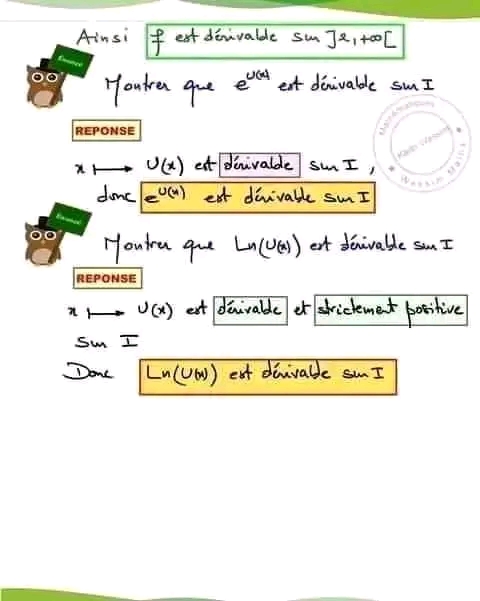 Ainsi f est dérivable sur ]2,+∞[
Enoncé
Montrer que e^U(x) est dérivable sur I
REPONSE
x ⟼ U(x) est dérivable sur I,
donc e^U(x) est dérivable sur I
Enoncé
Montrer que Ln(U(x)) est dérivable sur I
REPONSE
x ⟼ U(x) est dérivable et strictement positive
sur I
Donc Ln(U(x)) est dérivable sur I